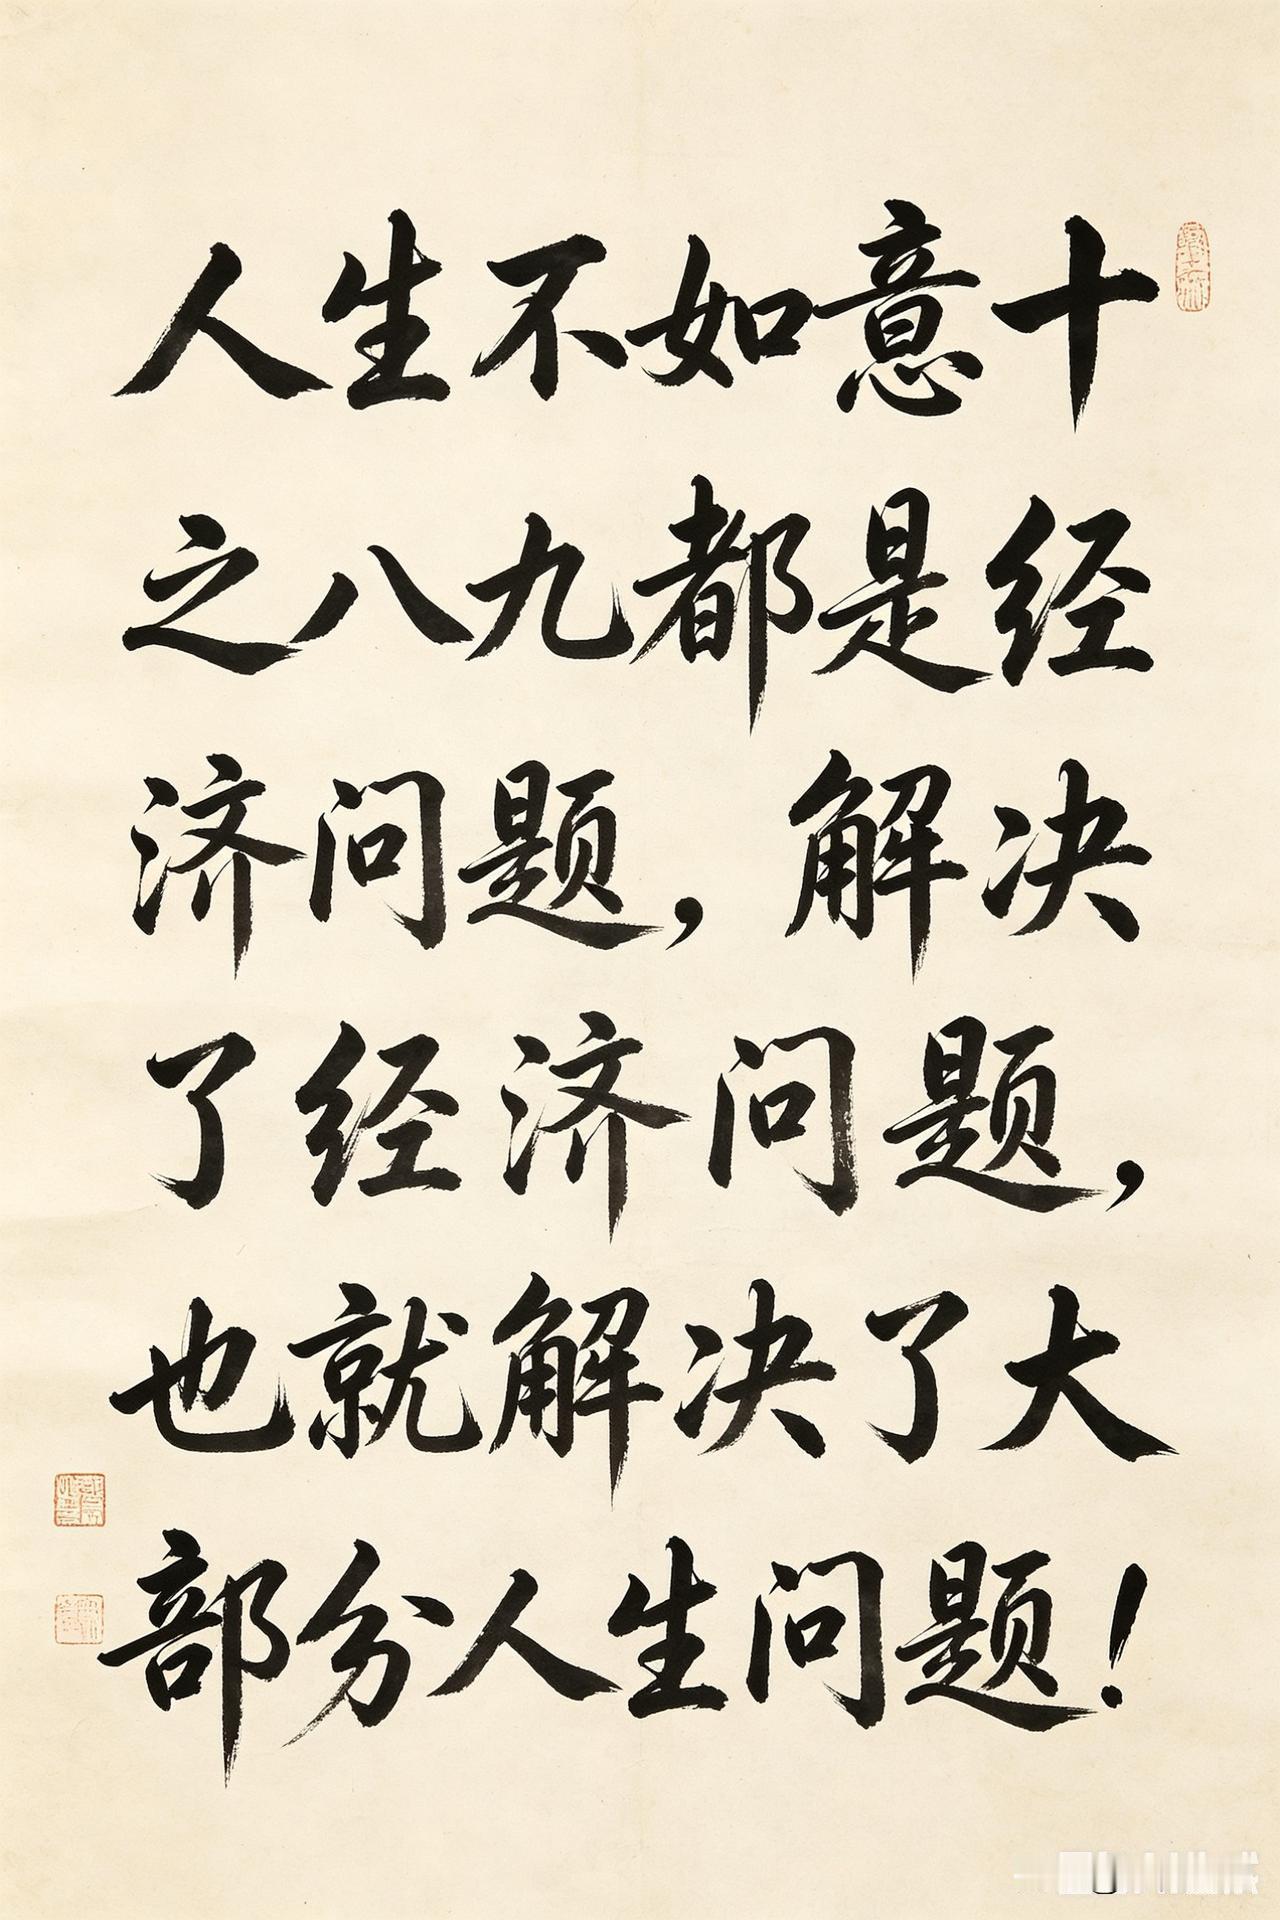 人生不如意十
之八九都是经
济问题，解决
了经济问题，
也就解决了大
部分人生问题！